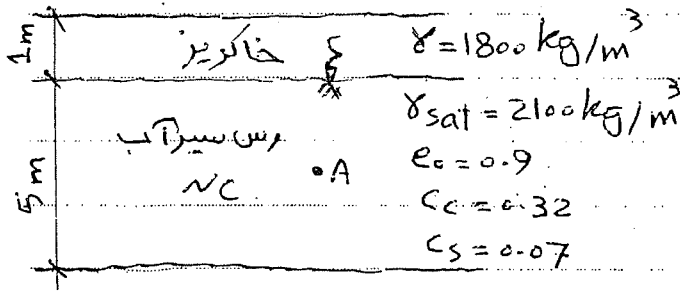 1m
خاکریز
γ = 1800 kg/m³
5m
رس سیرآب
NC
•A
γsat = 2100 kg/m³
e₀ = 0.9
Cc = 0.32
Cs = 0.07